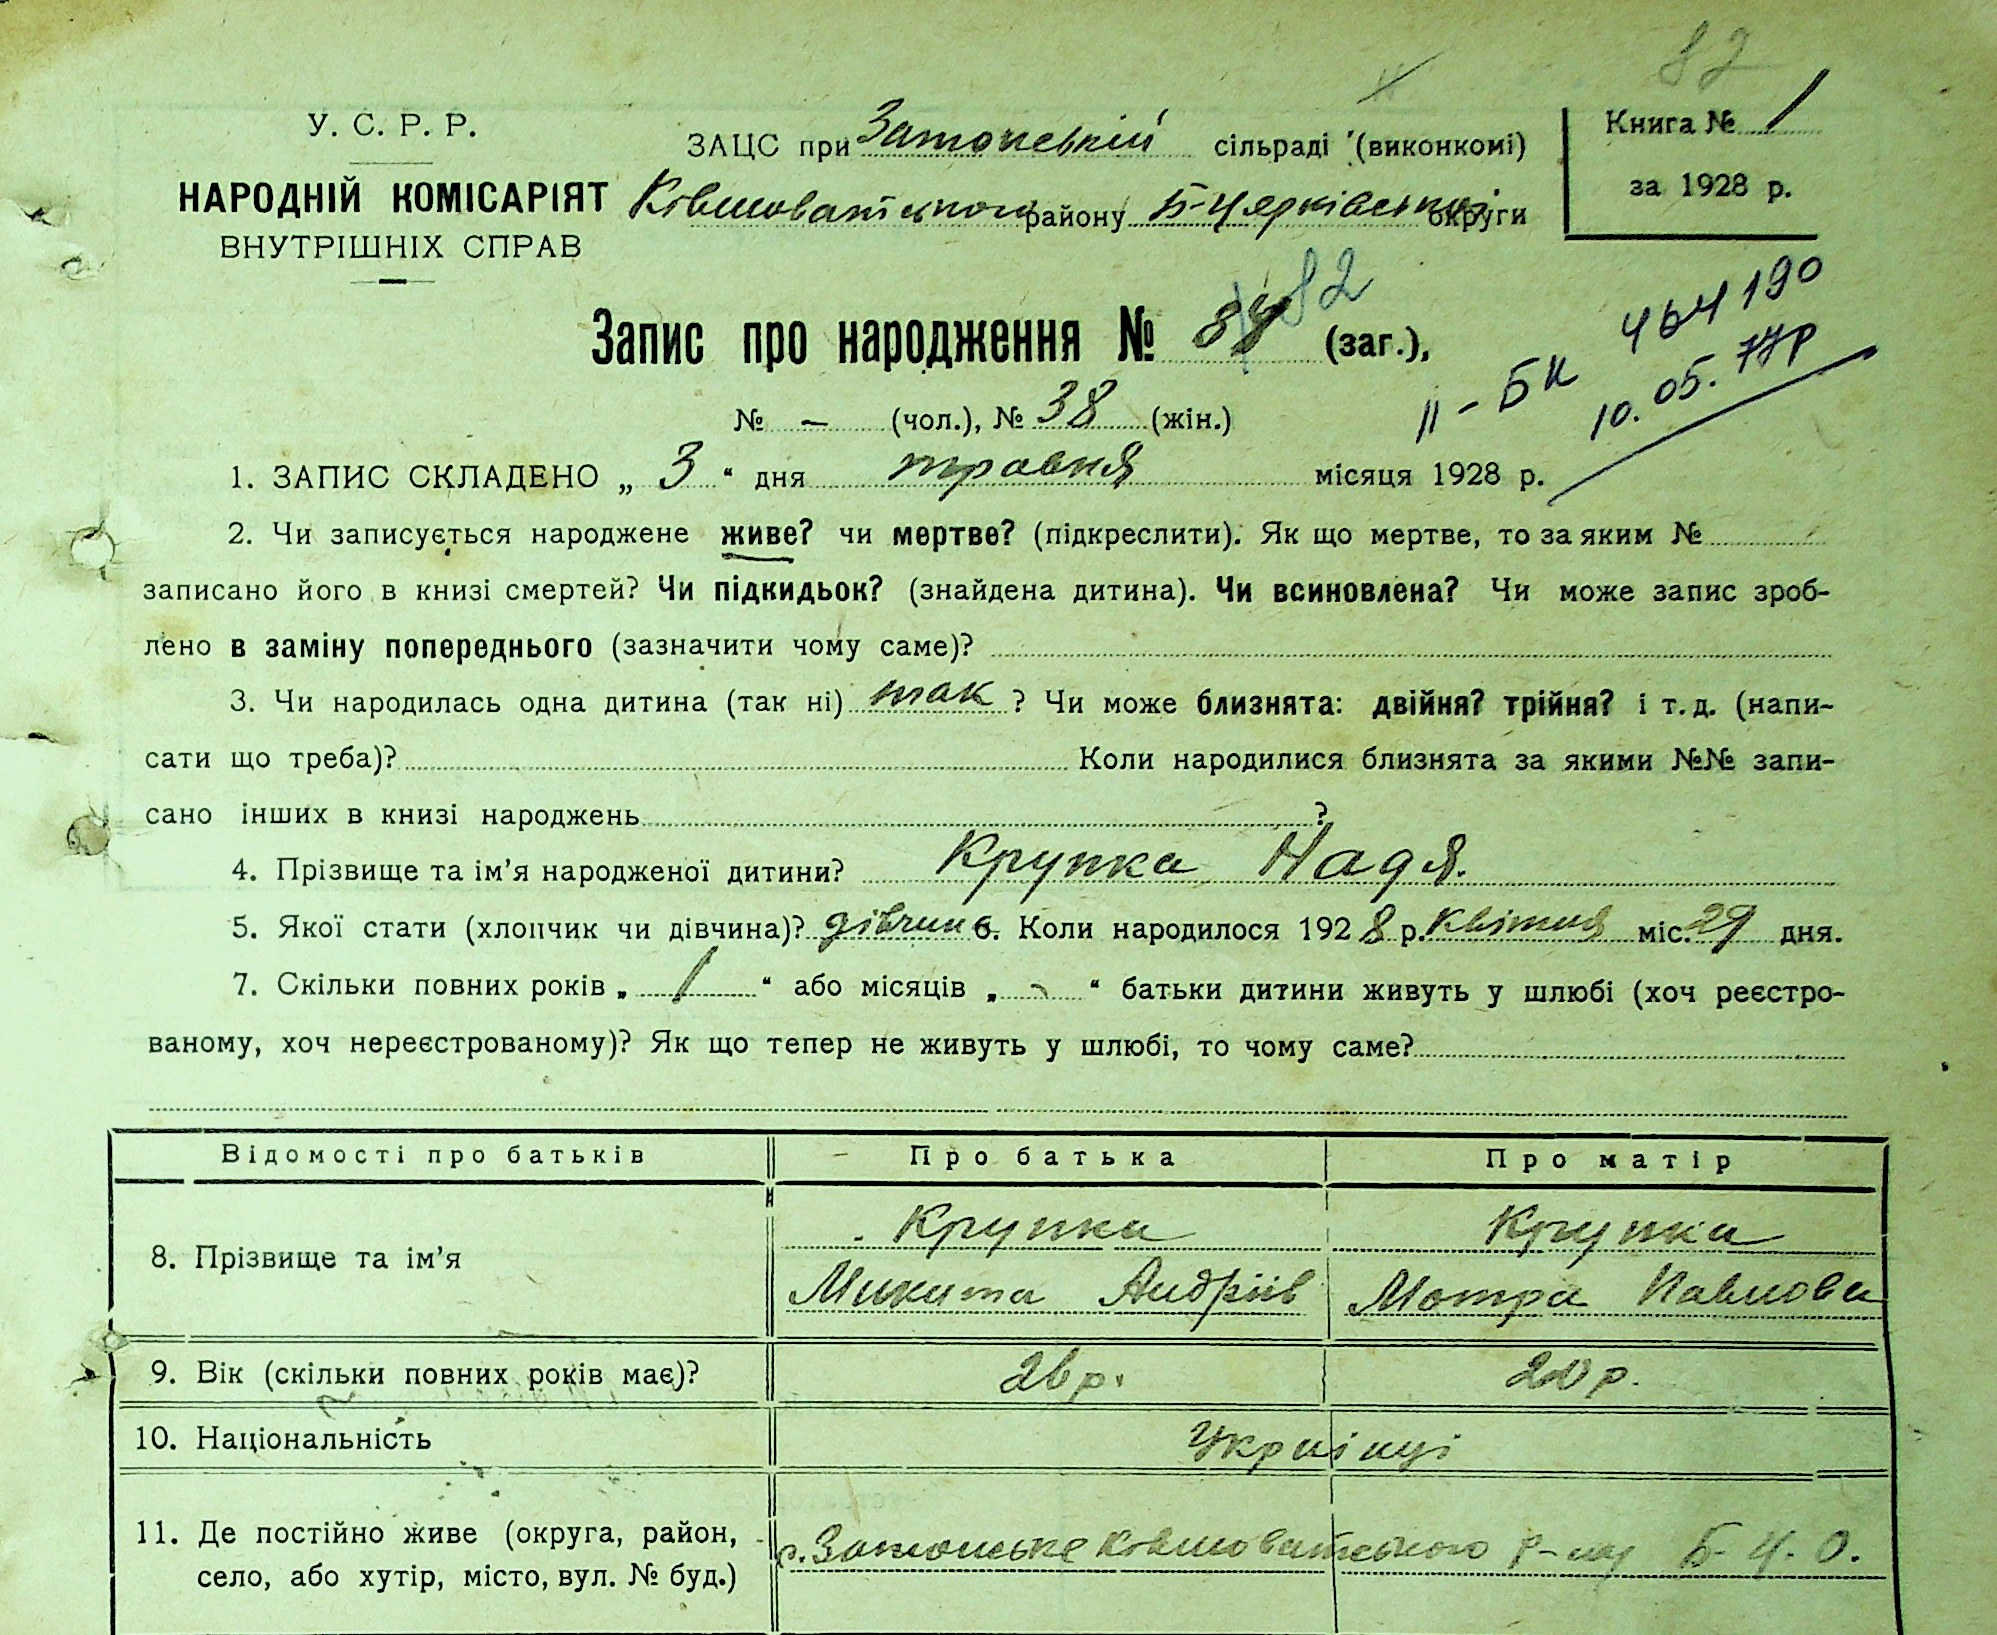 82
У. С. Р. Р.
НАРОДНІЙ КОМІСАРІЯТ
ВНУТРІШНІХ СПРАВ
ЗАЦС при Затонській сільраді (виконкомі)
Ковшоватського району Б-Церківської округи
Книга № 1
за 1928 р.
Запис про народження № 84 82 (заг.),
№ — (чол.), № 38 (жін.)
II - БК 464190
10.05.77р
1. ЗАПИС СКЛАДЕНО „ 3 “ дня травня місяця 1928 р.
2. Чи записується народжене живе? чи мертве? (підкреслити). Як що мертве, то за яким №
записано його в книзі смертей? Чи підкидьок? (знайдена дитина). Чи всиновлена? Чи може запис зроб-
лено в заміну попереднього (зазначити чому саме)?
3. Чи народилась одна дитина (так ні) так ? Чи може близнята: двійня? трійня? і т. д. (напи-
сати що треба)? Коли народилися близнята за якими №№ запи-
сано інших в книзі народжень ?
4. Прізвище та ім’я народженої дитини? Крупка Надя.
5. Якої стати (хлопчик чи дівчина)? дівчин 6. Коли народилося 1928 р. Квітня міс. 29 дня.
7. Скільки повних років „ 1 “ або місяців „ - “ батьки дитини живуть у шлюбі (хоч реєстро-
ваному, хоч нереєстрованому)? Як що тепер не живуть у шлюбі, то чому саме?
Відомості про батьків Про батька Про матір
8. Прізвище та ім’я
Крупка Крупка
Микита Андріїв Мотра Павлова
9. Вік (скільки повних років має)? 26 р. 20 р.
10. Національність Українці
11. Де постійно живе (округа, район,
село, або хутір, місто, вул. № буд.)
с. Затонське Ковшоватського р-ну Б-Ц. О.